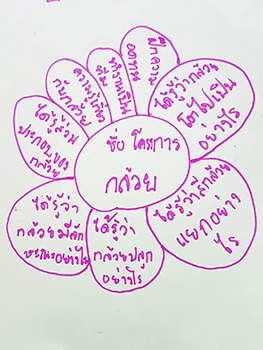 ชื่อ โครงการ
กล้วย
ฝึกความ
อดทน
ได้รู้ว่ากล้วย
โตไปเป็น
อย่างไร
แยกอย่าง
ไร
ได้รู้ว่า
กล้วยปลูก
อย่างไร
ได้รู้ว่า
กล้วยมีลัก
ษณะอย่างไร
ได้รู้ส่วน
ประกอบของ
กล้วย
ความรู้เกี่ยว
กับกล้วย
ทำงานเป็น
ทีม